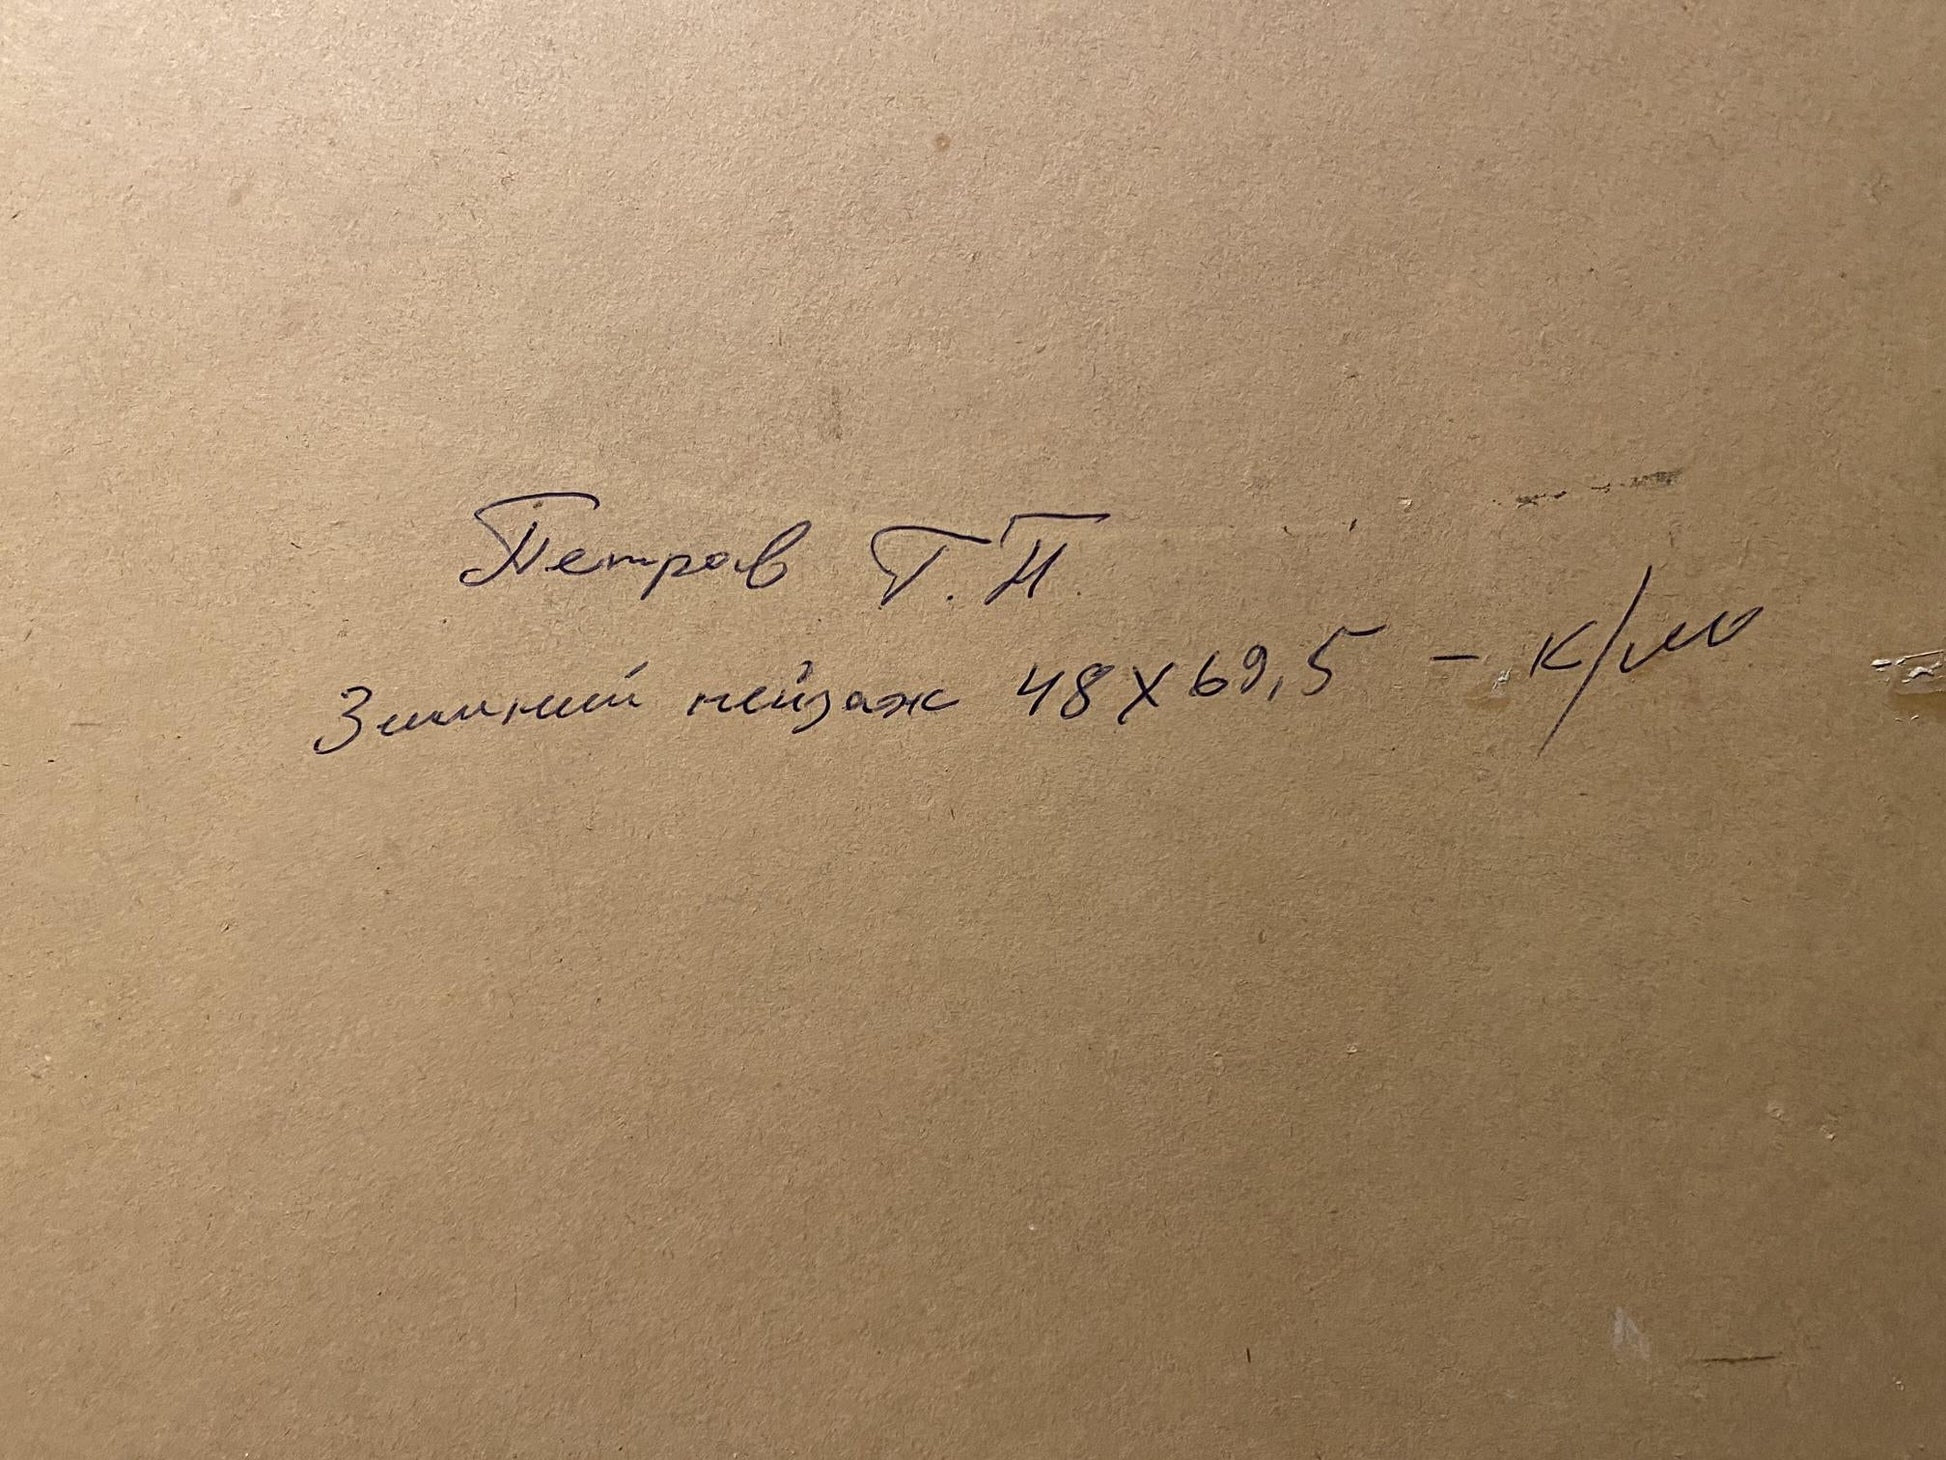 Петров Г.П.
Зимний пейзаж 48х69,5 - к/м